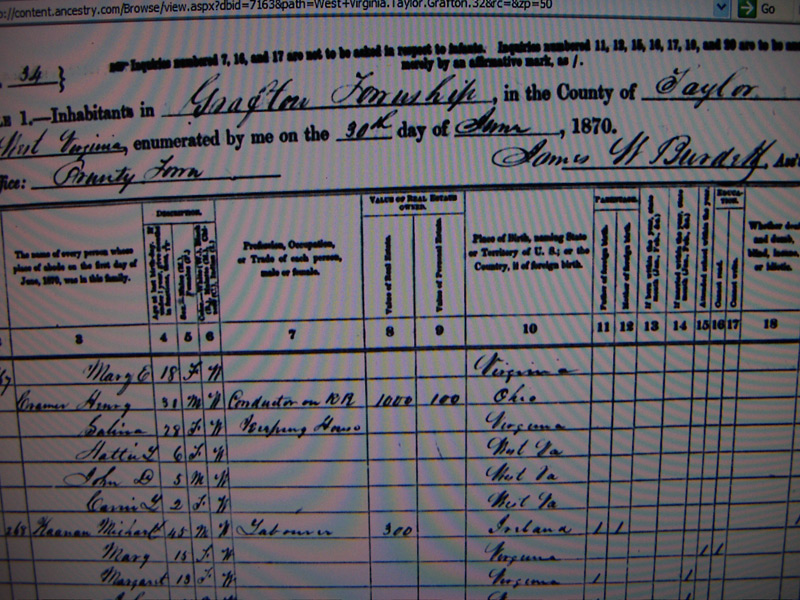 p://content.ancestry.com/Browse/view.aspx?dbid=7163&path=West+Virginia.Taylor.Grafton.32&rc=&zp=50 Go
Inquiries numbered 7, 16, and 17 are not to be asked in respect to infants. Inquiries numbered 11, 12, 15, 16, 17, 19, and 20 are to be
34 } merely by an affirmative mark, as /.
LE 1.—Inhabitants in Grafton Township, in the County of Taylor
West Virginia, enumerated by me on the 30th day of June, 1870.
ffice: Prunty Town James W Burdett, Ass't
The name of every person whose place of abode on the first day of June, 1870, was in this family.
DESCRIPTION.
Profession, Occupation, or Trade of each person, male or female.
VALUE OF REAL ESTATE OWNED.
Value of Real Estate.
Value of Personal Estate.
Place of Birth, naming State or Territory of U. S.; or the Country, if of foreign birth.
PARENTAGE.
Father of foreign birth.
Mother of foreign birth.
EDUCATION.
Cannot read.
Cannot write.
Whether deaf and dumb, blind, insane, or idiotic.
3 4 5 6 7 8 9 10 11 12 13 14 15 16 17 18
67 Mary E 18 F W Virginia
Cramer Henry 31 M W Conductor on RR 1000 100 Ohio
Salina 28 F W Keeping House Virginia
Hattie L 6 F W West Va
John D 5 M W West Va
Carrie L 2 F W West Va
268 Keanan Michael 45 M W Labourer 300 Ireland 1 1
Mary 15 F W Virginia 1 1
Margaret 13 F W Virginia 1 1